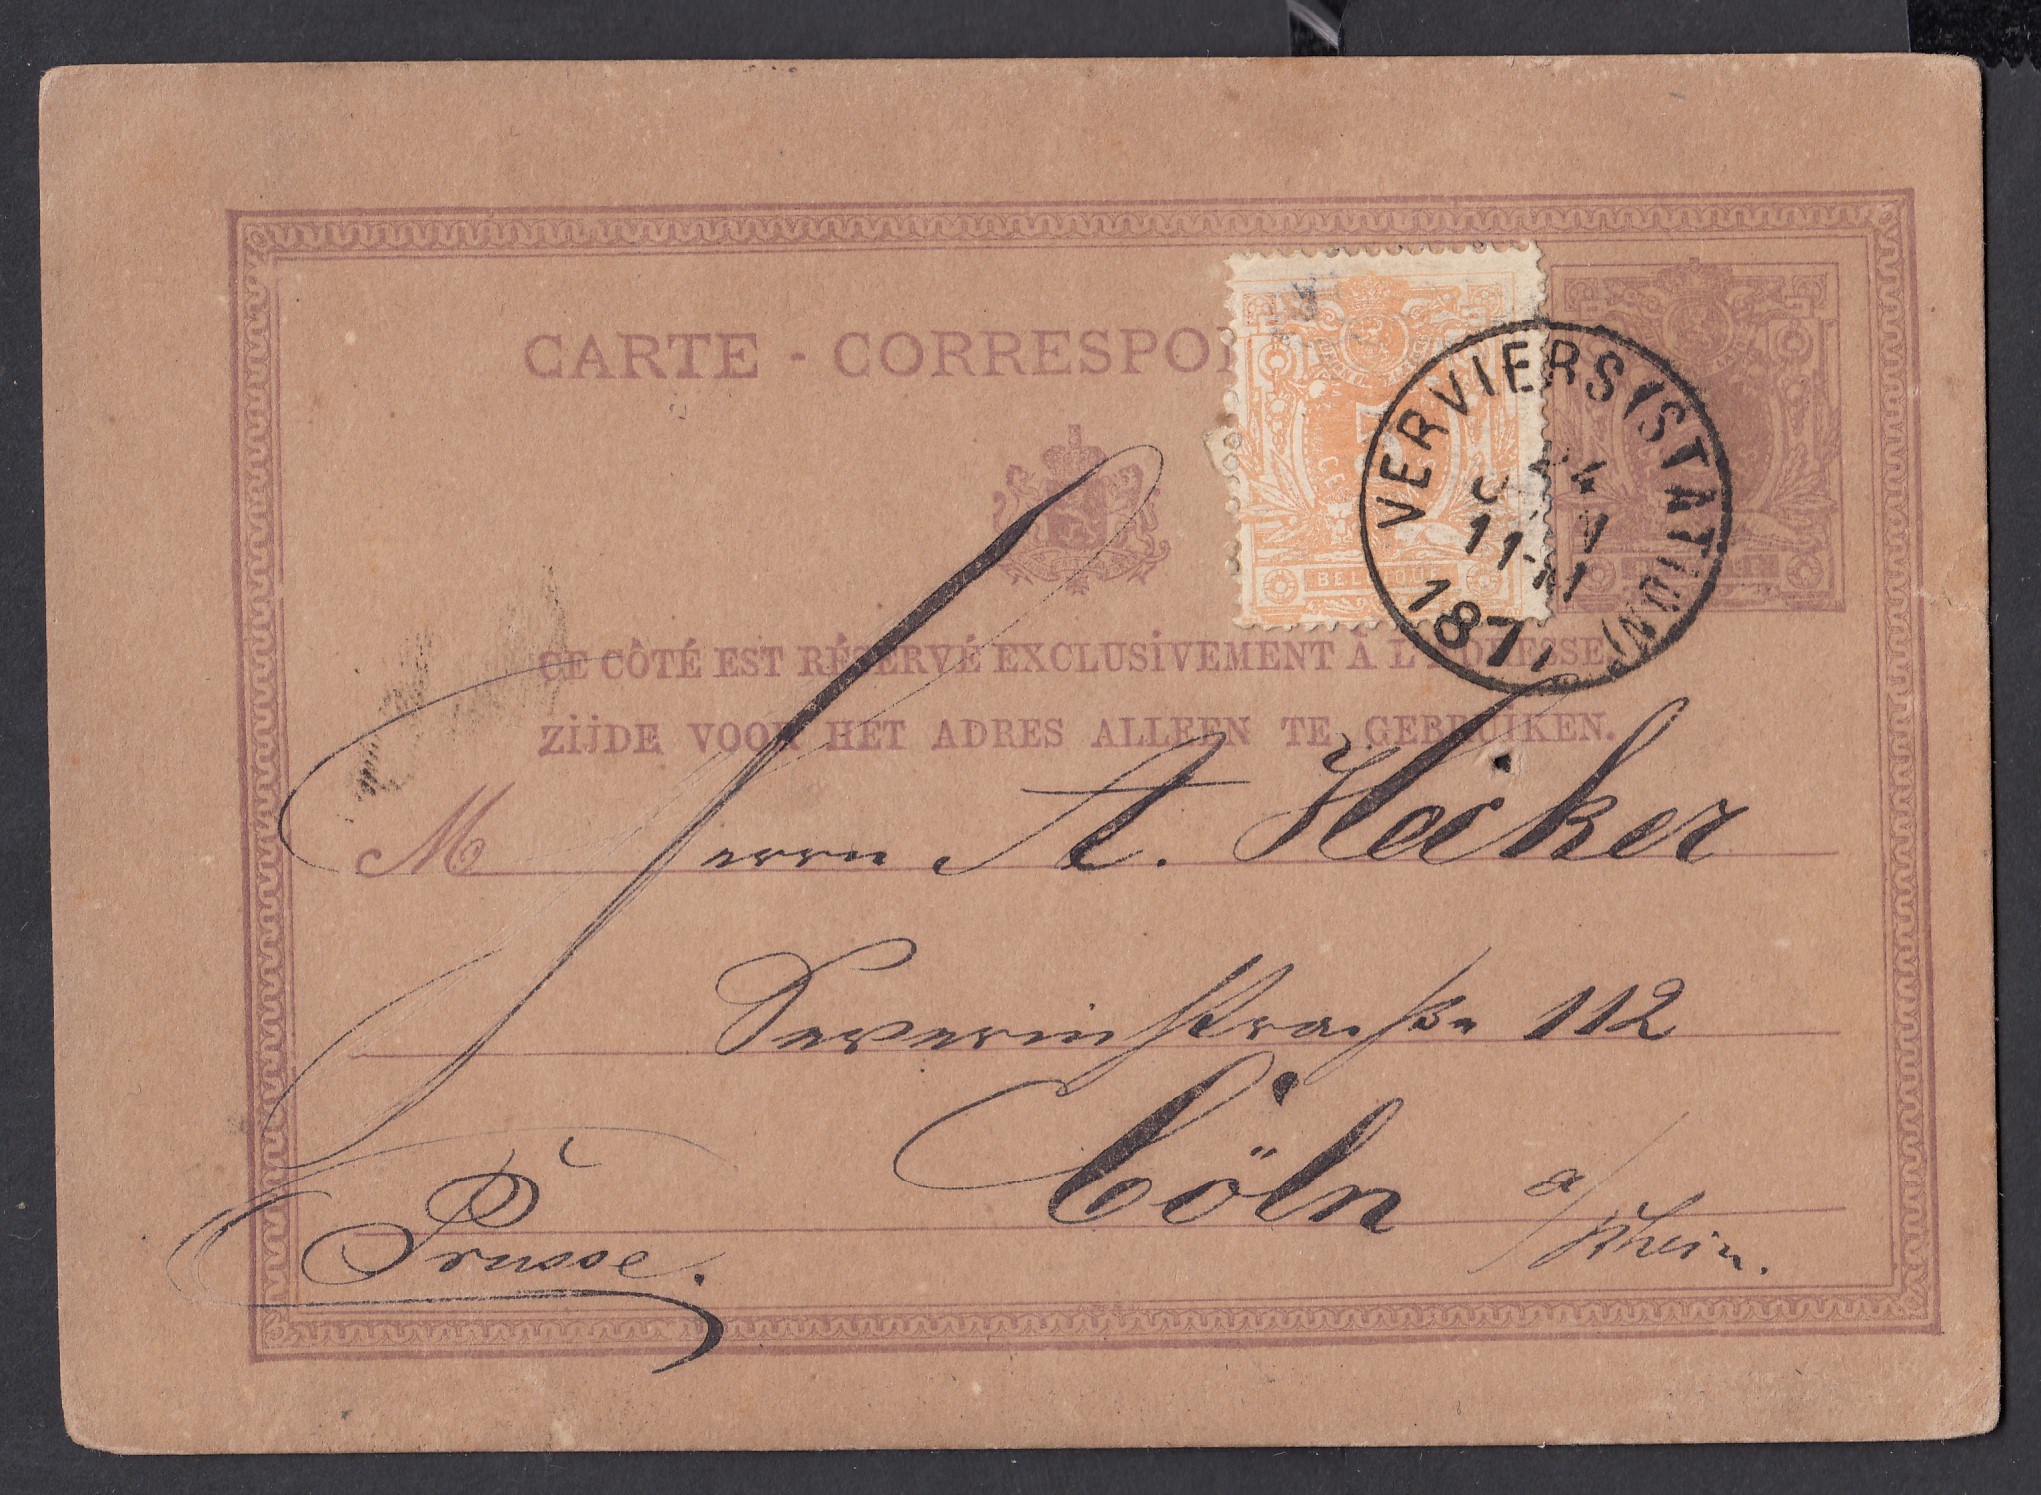 CARTE - CORRESPO
BELGIQUE
VERVIERS (STATION)
187
CE CÔTÉ EST RÉSERVÉ EXCLUSIVEMENT À L'ADRESSE
ZIJDE VOOR HET ADRES ALLEEN TE GEBRUIKEN.
M Herrn A. Häcker
Severinstraße 112
Cöln a/Rhein.
Prusse.